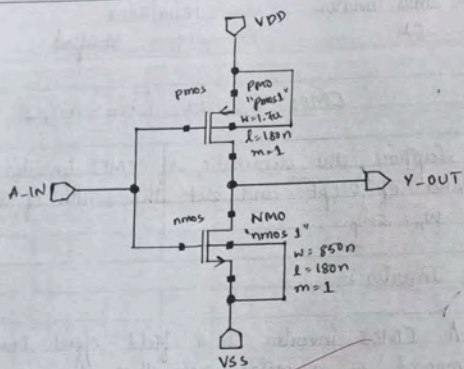 VDD
pmos
PM0
"pmos1"
w=1.7u
l=180n
m=1
A_IN
Y_OUT
nmos
NM0
"nmos 1"
w= 850n
l= 180n
m=1
VSS